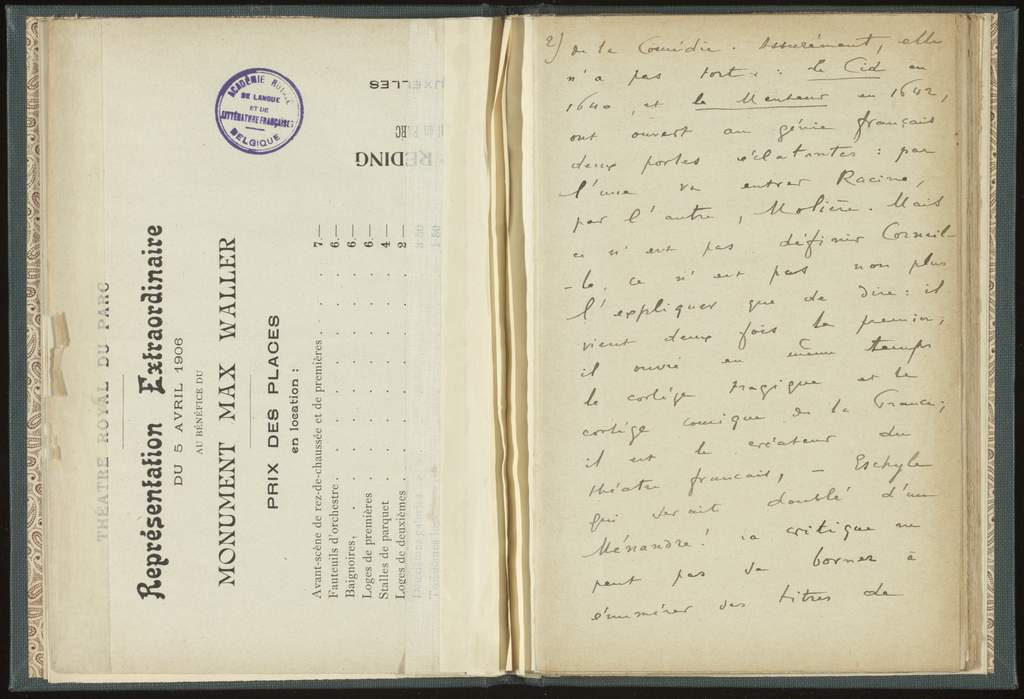 THÉATRE ROYAL DU PARC
Représentation Extraordinaire
DU 5 AVRIL 1906
AU BÉNÉFICE DU
MONUMENT MAX WALLER
PRIX DES PLACES
en location :
Avant-scène de rez-de-chaussée et de premières . . . 7.—
Fauteuils d'orchestre . . . . . . . 6.—
Baignoires, . . . . . . . 6.—
Loges de premières . . . . . . . 6.—
Stalles de parquet . . . . . . . 4.—
Loges de deuxièmes . . . . . . . 2.—
ACADÉMIE ROYALE
DE LANGUE
ET DE
LITTÉRATURE FRANÇAISES
BELGIQUE
UXELLES
PARC
REDING
2) de la Comédie. Assurément, elle
n'a pas tort : le Cid en
1640, et le Menteur en 1642,
ont ouvert au génie français
deux portes éclatantes : par
l'une va entrer Racine,
par l'autre, Molière. Mais
ce n'est pas définir Corneil-
-le, ce n'est pas non plus
l'expliquer que de dire : il
vient deux fois le premier,
il ouvre en même temps
le cortège tragique et le
cortège comique de la France ;
il est le créateur du
théâtre français, – Eschyle
qui serait doublé d'un
Ménandre ! La critique ne
peut pas se borner à
énumérer des titres de